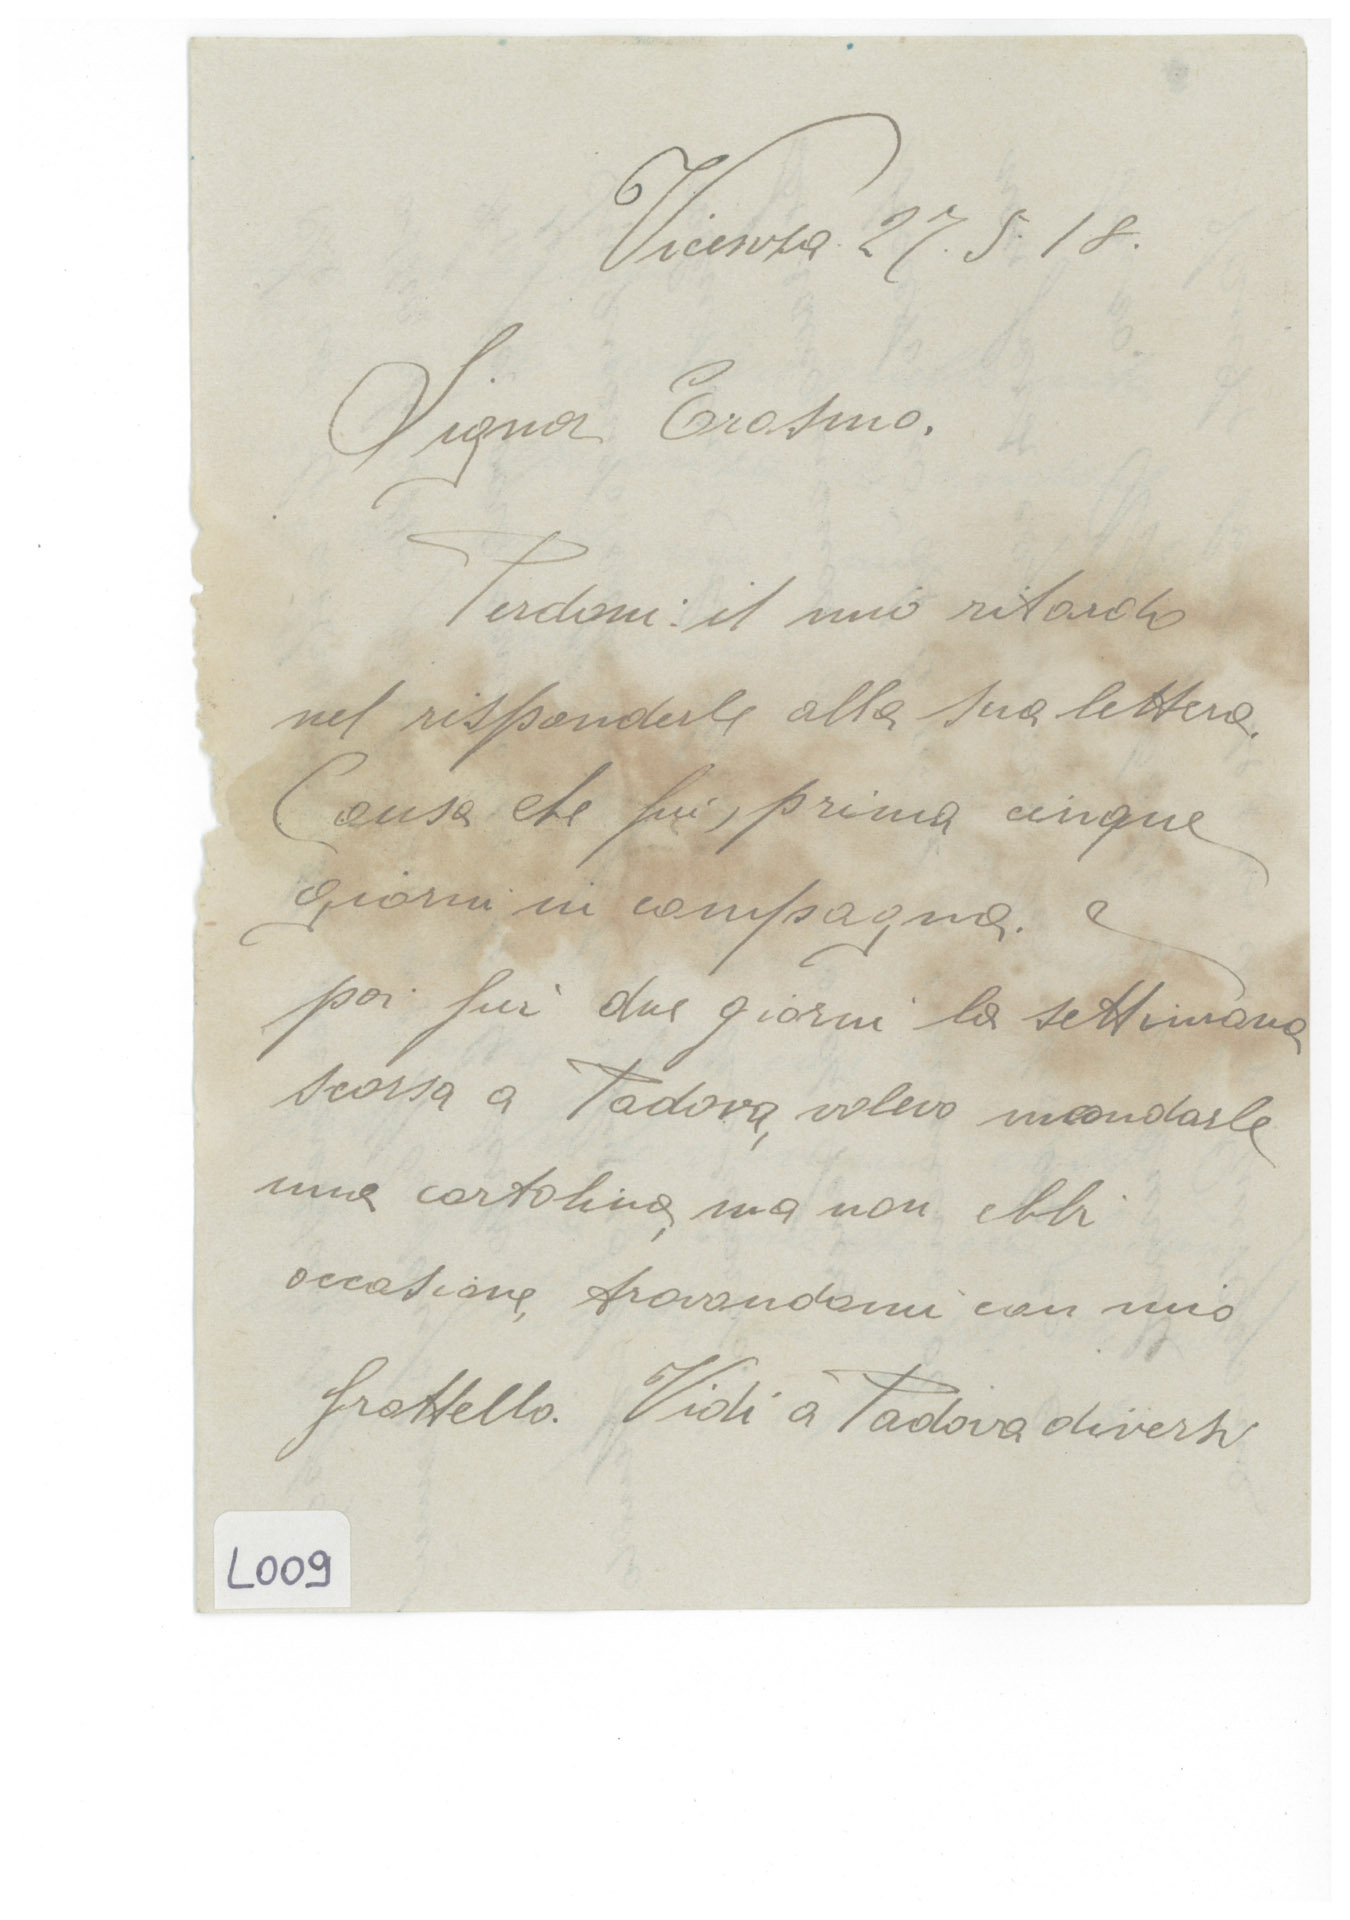 Vicenza 27. 5. 18.
Signor Erasmo.
Perdoni: il mio ritardo
nel risponderle alla sua lettera.
Causa che fui, prima cinque
giorni in campagna. e
poi fui due giorni la settimana
scorsa a Padova, volevo mandarle
una cartolina, ma non ebbi
occasione, trovandomi con mio
frattello. Vidi a Padova diversi
L009